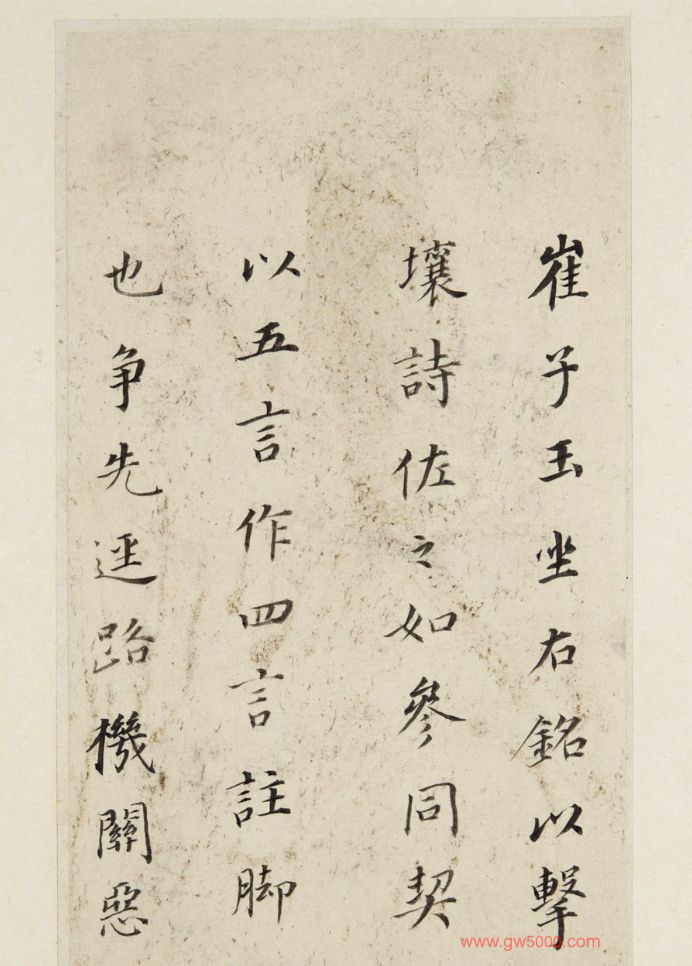 崔子玉坐右銘以擊
壤詩佐之如參同契
以五言作四言註脚
也争先逕路機關惡
www.gw5000.com